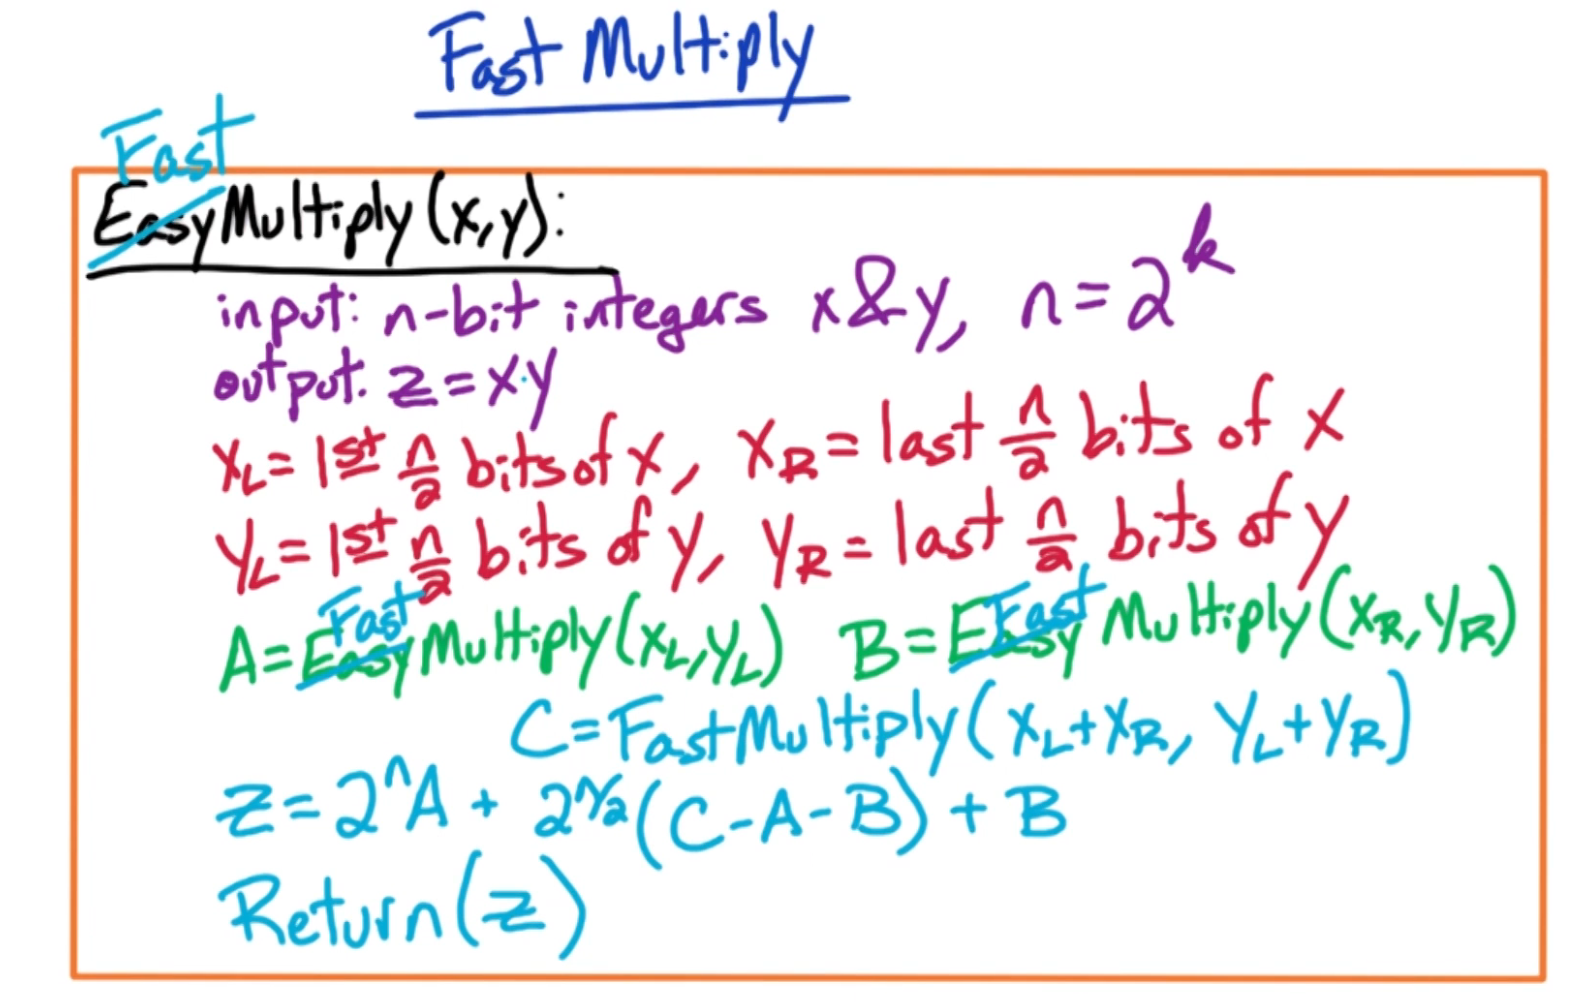 Fast Multiply
Fast
EasyMultiply(x,y):
input: n-bit integers x&y, n=2^k
output: z=x·y
x_L=1st n/2 bits of x, x_R=last n/2 bits of x
y_L=1st n/2 bits of y, y_R=last n/2 bits of y
Fast Fast
A=EasyMultiply(x_L,y_L) B=EasyMultiply(x_R,y_R)
C=FastMultiply(x_L+x_R, y_L+y_R)
z=2^n A + 2^{n/2}(C-A-B)+B
Return(z)